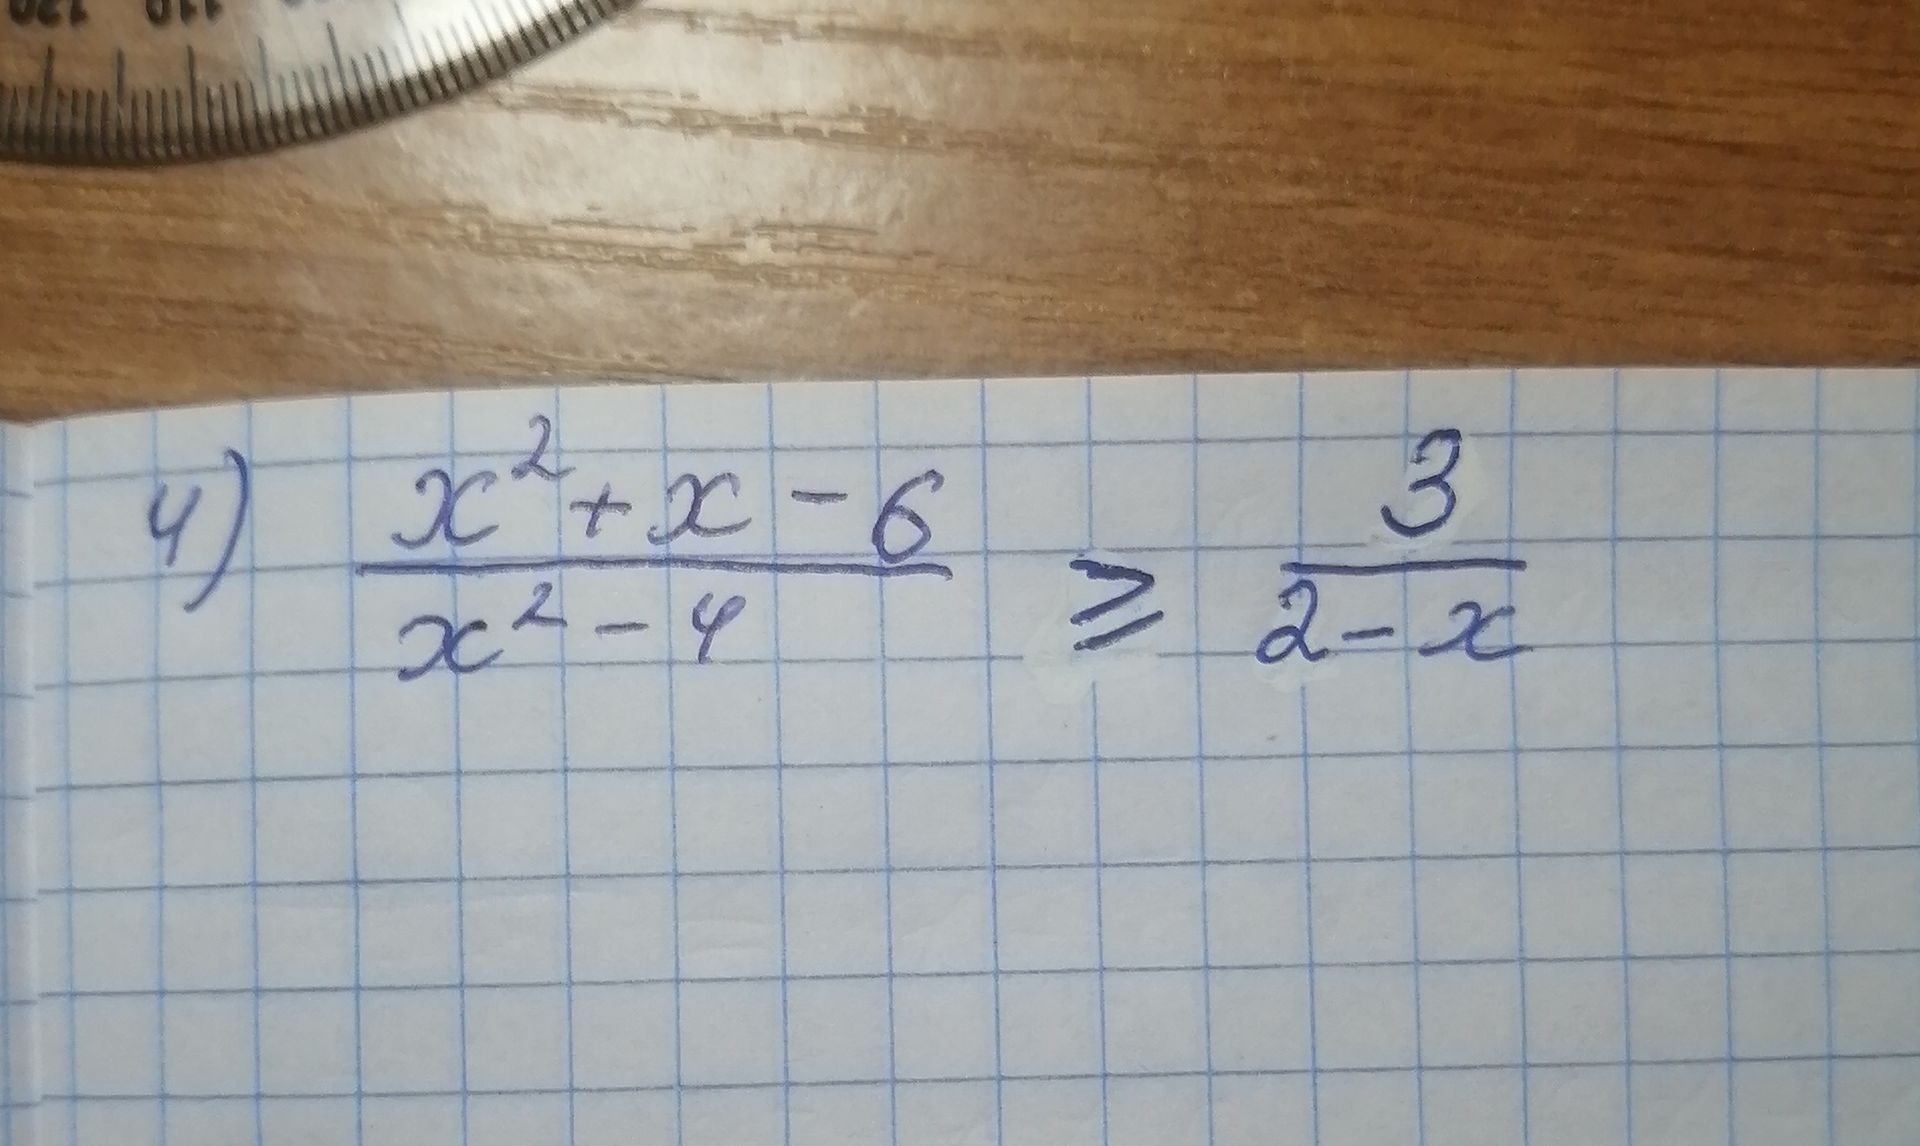 120 110
4) (x² + x - 6)/(x² - 4) ≥ 3/(2 - x)